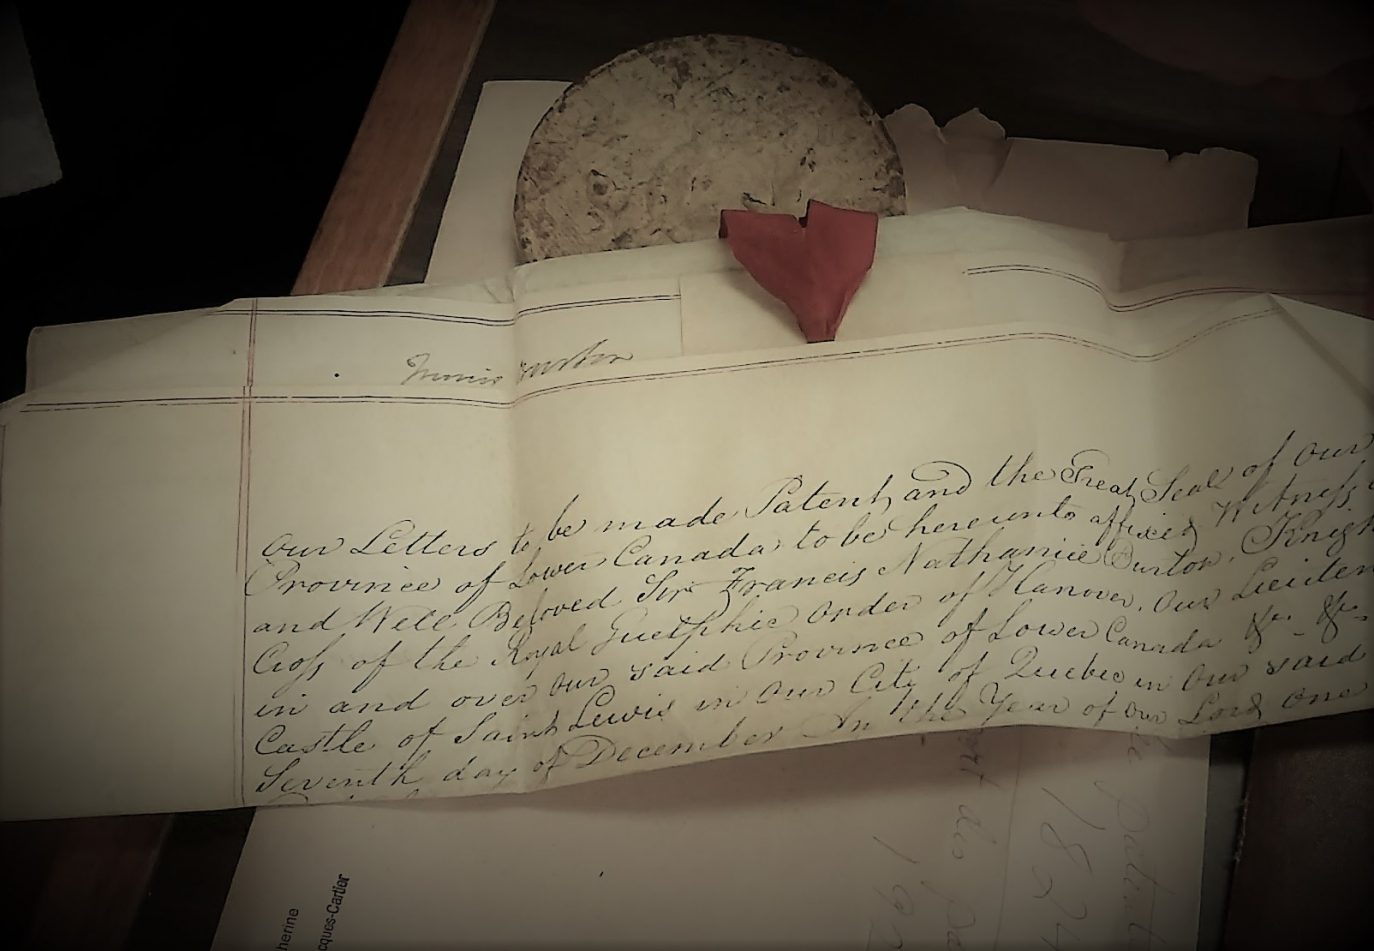 our Letters to be made Patent, and the Great Seal of Our
Province of Lower Canada to be hereunto affixed Witness
and Well Beloved Sir Francis Nathaniel Burton, Knight
Cross of the Royal Guelphic Order of Hanover, Our Lieuten
in and over Our said Province of Lower Canada &c. - &c. -
Castle of Saint Lewis in Our City of Quebec in Our said
Seventh day of December In the Year of Our Lord One
1824
herine
cques-Cartier